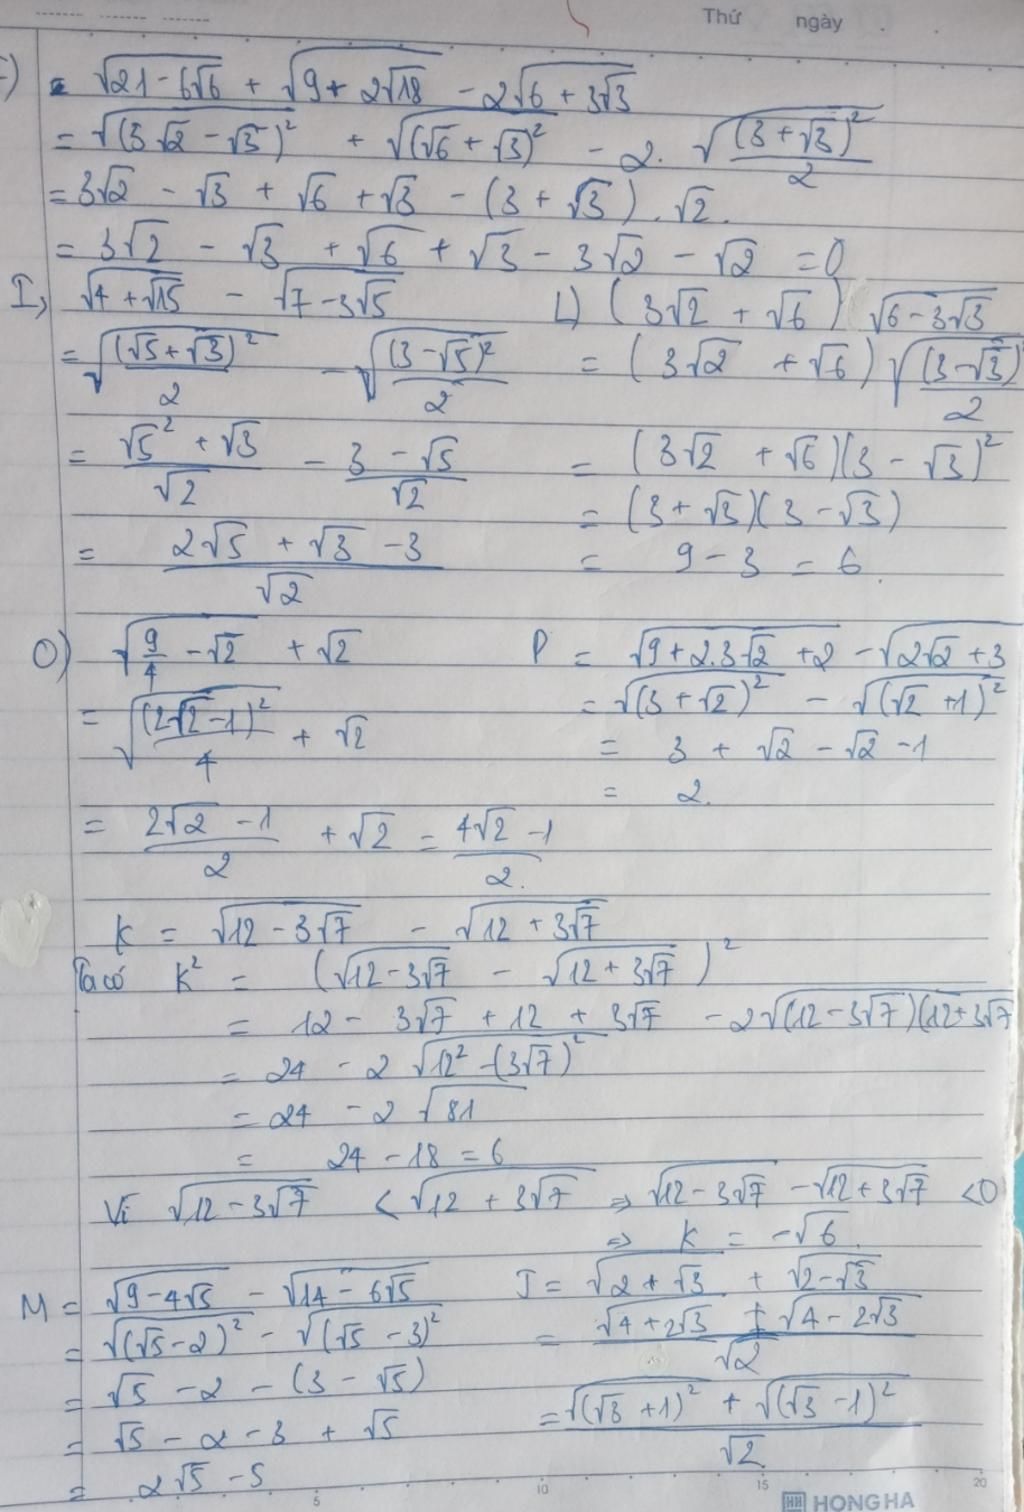 Thứ ngày
F) = √(21-6√6) + √(9+2√18) - 2√(6+3√3)
= √((3√2-√3)²) + √((√6+√3)²) - 2.√((3+√3)²/2)
= 3√2 - √3 + √6 + √3 - (3+√3).√2.
= 3√2 - √3 + √6 + √3 - 3√2 - √2 = 0
I, √(4+√15) - √(7-3√5)
= √((√5+√3)²/2) - √((3-√5)²/2)
= (√5² + √3)/√2 - (3-√5)/√2
= (2√5 + √3 - 3)/√2
L) (3√2 + √6) √(6-3√3)
= (3√2 + √6) √((3-√3)²/2)
= (3√2 + √6)(3-√3)²
= (3+√3)(3-√3)
= 9-3 = 6.
O) √(9/4 - √2) + √2
= √((2√2-1)²/4) + √2
= (2√2-1)/2 + √2 = (4√2-1)/2.
P = √(9+2.3√2+2) - √(2√2+3)
= √((3+√2)²) - √((√2+1)²)
= 3 + √2 - √2 - 1
= 2.
K = √(12-3√7) - √(12+3√7)
Ta có K² = (√(12-3√7) - √(12+3√7))²
= 12 - 3√7 + 12 + 3√7 - 2√((12-3√7)(12+3√7)
= 24 - 2√(12²-(3√7)²)
= 24 - 2√81
= 24 - 18 = 6
Vì √(12-3√7) < √(12+3√7) ⇒ √(12-3√7) - √(12+3√7) < 0
⇒ K = -√6.
M = √(9-4√5) - √(14-6√5)
= √((√5-2)²) - √((√5-3)²)
= √5 - 2 - (3-√5)
= √5 - 2 - 3 + √5
= 2√5 - 5
J = √(2+√3) + √(2-√3)
= (√(4+2√3) + √(4-2√3))/√2
= (√((√3+1)²) + √((√3-1)²))/√2
5 10 15 20
HH HONG HA